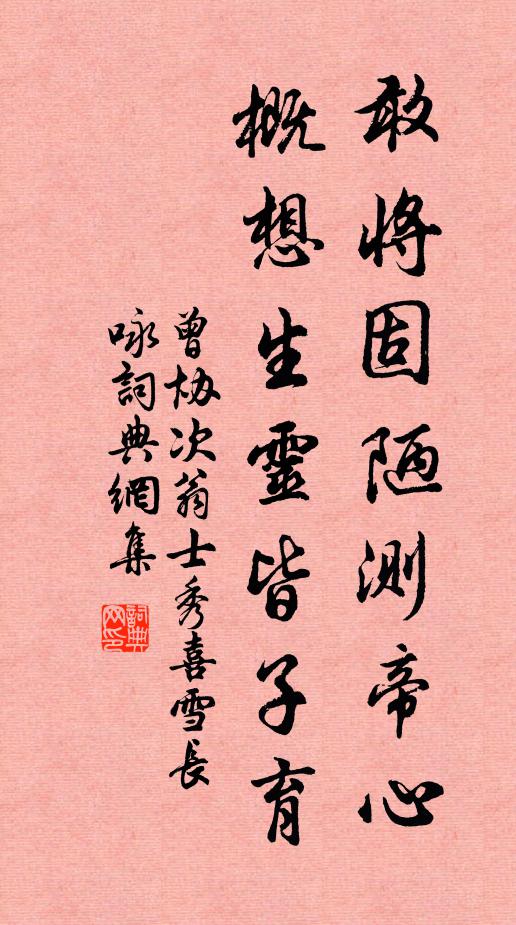 敢將固陋測帝心
概想生靈皆子育
曾協次翁士秀喜雪長
咏詞典網集
詞典網印